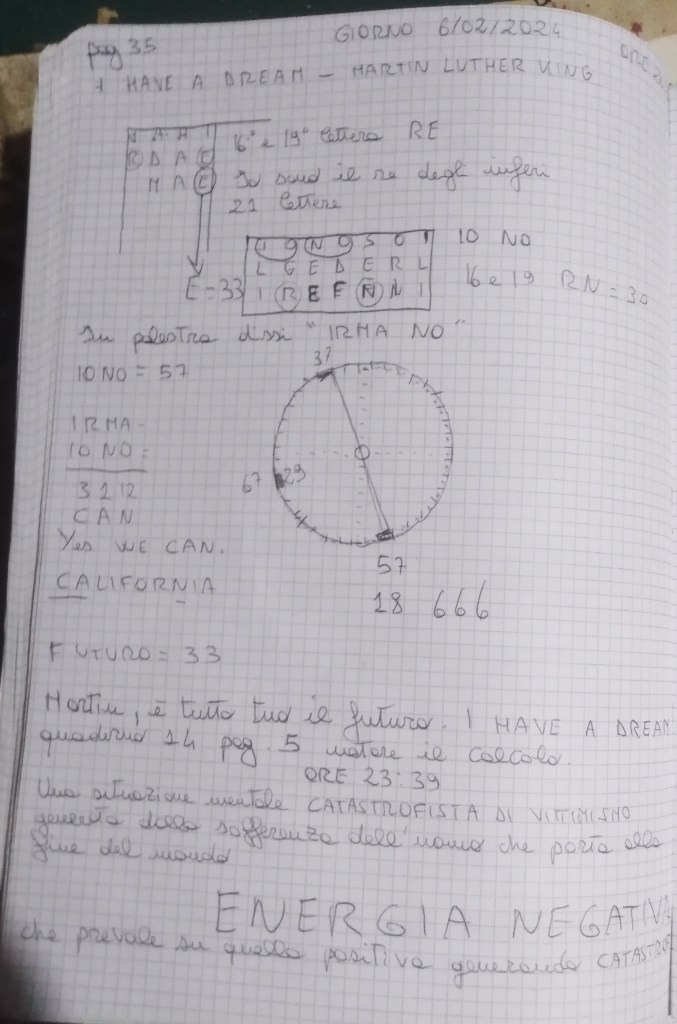 pag 35
GIORNO 6/02/2024
ORE
I HAVE A DREAM - MARTIN LUTHER KING
16° e 19° lettera RE
R D A E
M A E
Io sono il re degli inferi
21 lettere
I O N O S O I
L G E D E R L
I R E F N N I
10 NO
E = 33
16 e 19 RN = 30
In palestra dissi "IRMA NO"
37
IO NO = 57
IRMA -
IO NO =
67 29
3 2 12
CAN
Yes WE CAN.
57
CALIFORNIA
18 666
FUTURO = 33
Martin, è tutto tuo il futuro. I HAVE A DREAM
quaderno 14 pag. 5 notare il calcolo.
ORE 23:39
Una situazione mentale CATASTROFISTA DI VITTIMISMO
generata dalla sofferenza dell'uomo che porta alla
fine del mondo
ENERGIA NEGATIVA
che prevale su quella positiva generando CATASTROF